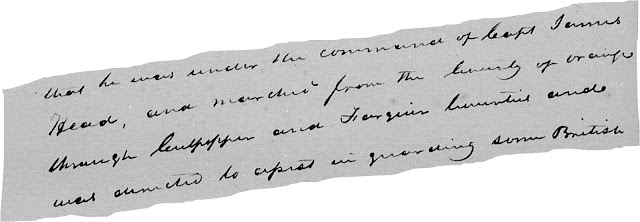 that he was under the command of Capt James
Head, and marched from the County of orange
through Culpepper and Farqier Counties and
was directed to assist in guarding some British